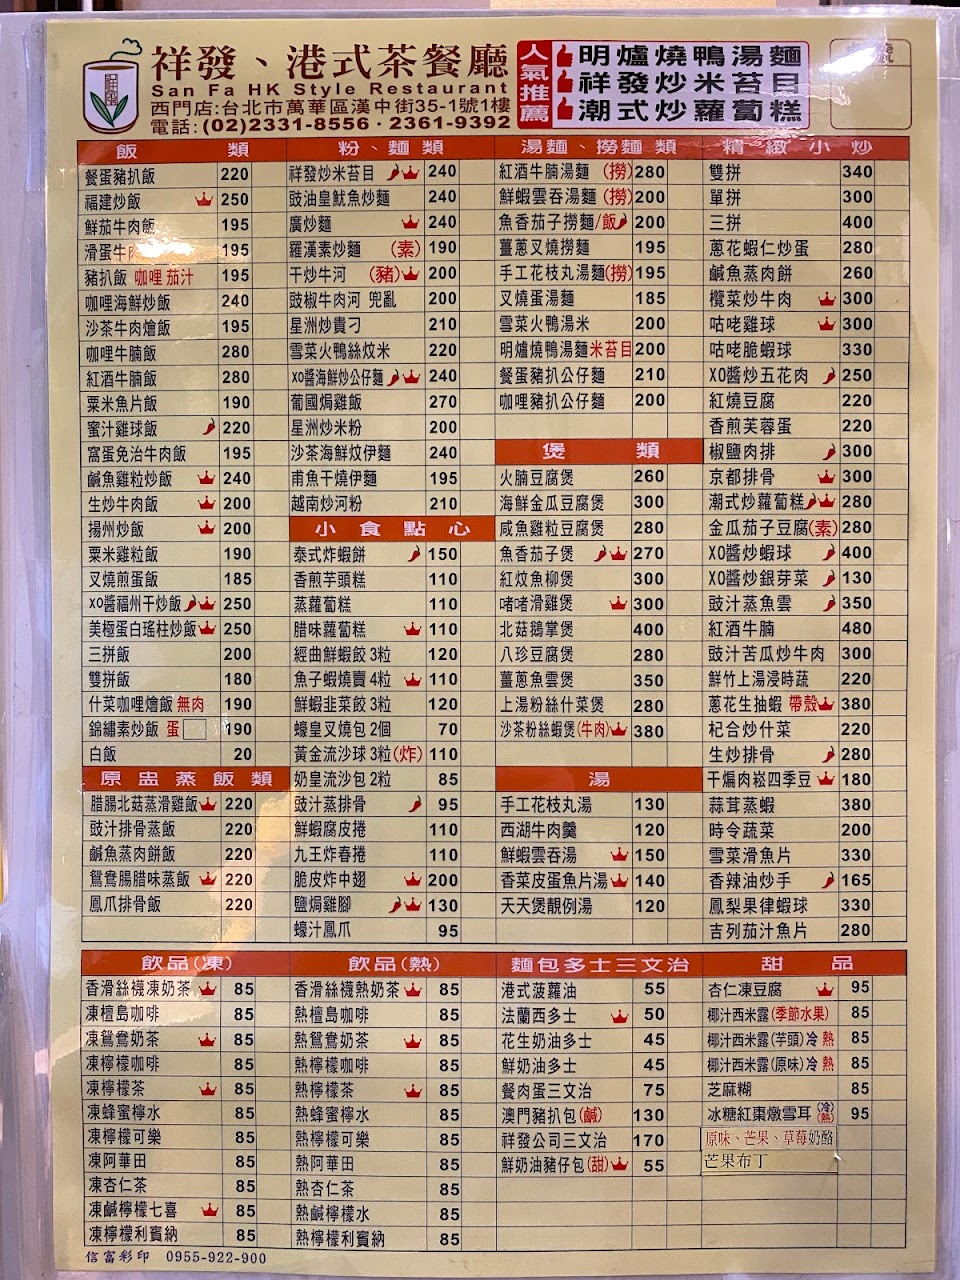 祥發、港式茶餐廳
San Fa HK Style Restaurant
西門店:台北市萬華區漢中街35-1號1樓
電話:(02)2331-8556・2361-9392
人氣推薦
明爐燒鴨湯麵
祥發炒米苔目
潮式炒蘿蔔糕
號
飯 類
餐蛋豬扒飯 220
福建炒飯 250
鮮茄牛肉飯 195
滑蛋牛 195
豬扒飯 咖哩 茄汁 195
咖哩海鮮炒飯 240
沙茶牛肉燴飯 195
咖哩牛腩飯 280
紅酒牛腩飯 280
粟米魚片飯 190
蜜汁雞球飯 220
窩蛋免治牛肉飯 195
鹹魚雞粒炒飯 240
生炒牛肉飯 200
揚州炒飯 200
粟米雞粒飯 190
叉燒煎蛋飯 185
XO醬福州干炒飯 250
美極蛋白瑤柱炒飯 250
三拼飯 200
雙拼飯 180
什菜咖哩燴飯 無肉 190
錦繡素炒飯 蛋 190
白飯 20
原盅蒸飯類
腊腸北菇蒸滑雞飯 220
豉汁排骨蒸飯 220
鹹魚蒸肉餅飯 220
鴛鴦腸腊味蒸飯 220
鳳爪排骨飯 220
粉、麵類
祥發炒米苔目 240
豉油皇魷魚炒麵 240
廣炒麵 240
羅漢素炒麵 (素) 190
干炒牛河 (豬) 200
豉椒牛肉河 兜亂 200
星洲炒貴刁 210
雪菜火鴨絲炆米 220
XO醬海鮮炒公仔麵 240
葡國焗雞飯 270
星洲炒米粉 200
沙茶海鮮炆伊麵 240
甫魚干燒伊麵 195
越南炒河粉 210
小食點心
泰式炸蝦餅 150
香煎芋頭糕 110
蒸蘿蔔糕 110
腊味蘿蔔糕 110
經曲鮮蝦餃 3粒 120
魚子蝦燒賣 4粒 110
鮮蝦韭菜餃 3粒 120
蠔皇叉燒包 2個 70
黃金流沙球 3粒(炸) 110
奶皇流沙包 2粒 85
豉汁蒸排骨 95
鮮蝦腐皮捲 110
九王炸春捲 110
脆皮炸中翅 200
鹽焗雞腳 130
蠔汁鳳爪 95
湯麵、撈麵類
紅酒牛腩湯麵 (撈) 280
鮮蝦雲吞湯麵 (撈) 200
魚香茄子撈麵/飯 200
薑蔥叉燒撈麵 195
手工花枝丸湯麵(撈) 195
叉燒蛋湯麵 185
雪菜火鴨湯米 200
明爐燒鴨湯麵米苔目 200
餐蛋豬扒公仔麵 210
咖哩豬扒公仔麵 200
煲 類
火腩豆腐煲 260
海鮮金瓜豆腐煲 300
咸魚雞粒豆腐煲 280
魚香茄子煲 270
紅炆魚柳煲 300
啫啫滑雞煲 300
北菇鵝掌煲 400
八珍豆腐煲 280
薑蔥魚雲煲 350
上湯粉絲什菜煲 280
沙茶粉絲蝦煲(牛肉) 380
湯
手工花枝丸湯 130
西湖牛肉羹 120
鮮蝦雲吞湯 150
香菜皮蛋魚片湯 140
天天煲靚例湯 120
精緻小炒
雙拼 340
單拼 300
三拼 400
蔥花蝦仁炒蛋 280
鹹魚蒸肉餅 260
欖菜炒牛肉 300
咕咾雞球 300
咕咾脆蝦球 330
XO醬炒五花肉 250
紅燒豆腐 220
香煎芙蓉蛋 220
椒鹽肉排 300
京都排骨 300
潮式炒蘿蔔糕 280
金瓜茄子豆腐(素) 280
XO醬炒蝦球 400
XO醬炒銀芽菜 130
豉汁蒸魚雲 350
紅酒牛腩 480
豉汁苦瓜炒牛肉 300
鮮竹上湯浸時蔬 220
蔥花生抽蝦 帶殼 380
杞合炒什菜 220
生炒排骨 280
干煸肉崧四季豆 180
蒜茸蒸蝦 380
時令蔬菜 200
雪菜滑魚片 330
香辣油炒手 165
鳳梨果律蝦球 330
吉列茄汁魚片 280
飲品(凍)
香滑絲襪凍奶茶 85
凍檀島咖啡 85
凍鴛鴦奶茶 85
凍檸檬咖啡 85
凍檸檬茶 85
凍蜂蜜檸水 85
凍檸檬可樂 85
凍阿華田 85
凍杏仁茶 85
凍鹹檸檬七喜 85
凍檸檬利賓納 85
飲品(熱)
香滑絲襪熱奶茶 85
熱檀島咖啡 85
熱鴛鴦奶茶 85
熱檸檬咖啡 85
熱檸檬茶 85
熱蜂蜜檸水 85
熱檸檬可樂 85
熱阿華田 85
熱杏仁茶 85
熱鹹檸檬水 85
熱檸檬利賓納 85
麵包多士三文治
港式菠蘿油 55
法蘭西多士 50
花生奶油多士 45
鮮奶油多士 45
餐肉蛋三文治 75
澳門豬扒包(鹹) 130
祥發公司三文治 170
鮮奶油豬仔包(甜) 55
甜 品
杏仁凍豆腐 95
椰汁西米露(季節水果) 85
椰汁西米露(芋頭)冷 熱 85
椰汁西米露(原味)冷 熱 85
芝麻糊 85
冰糖紅棗燉雪耳 (冷)(熱) 95
原味、芒果、草莓奶酪
芒果布丁
信富彩印 0955-922-900